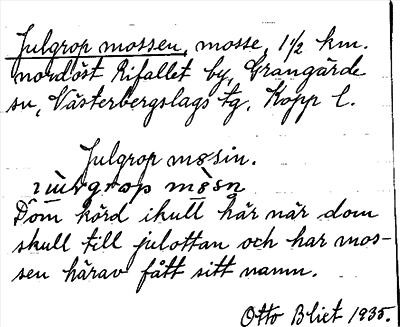 Julgrop mossen, mosse, 1 1/2 km.
nordöst Rifallet by, Grangärde
sn, Västerbergslags tg. Kopp. l.
Julgrop mosin.
Dom körd ikull här när dom
skull till julottan och har mos-
sen härav fått sitt namn.
Otto Blixt 1935.